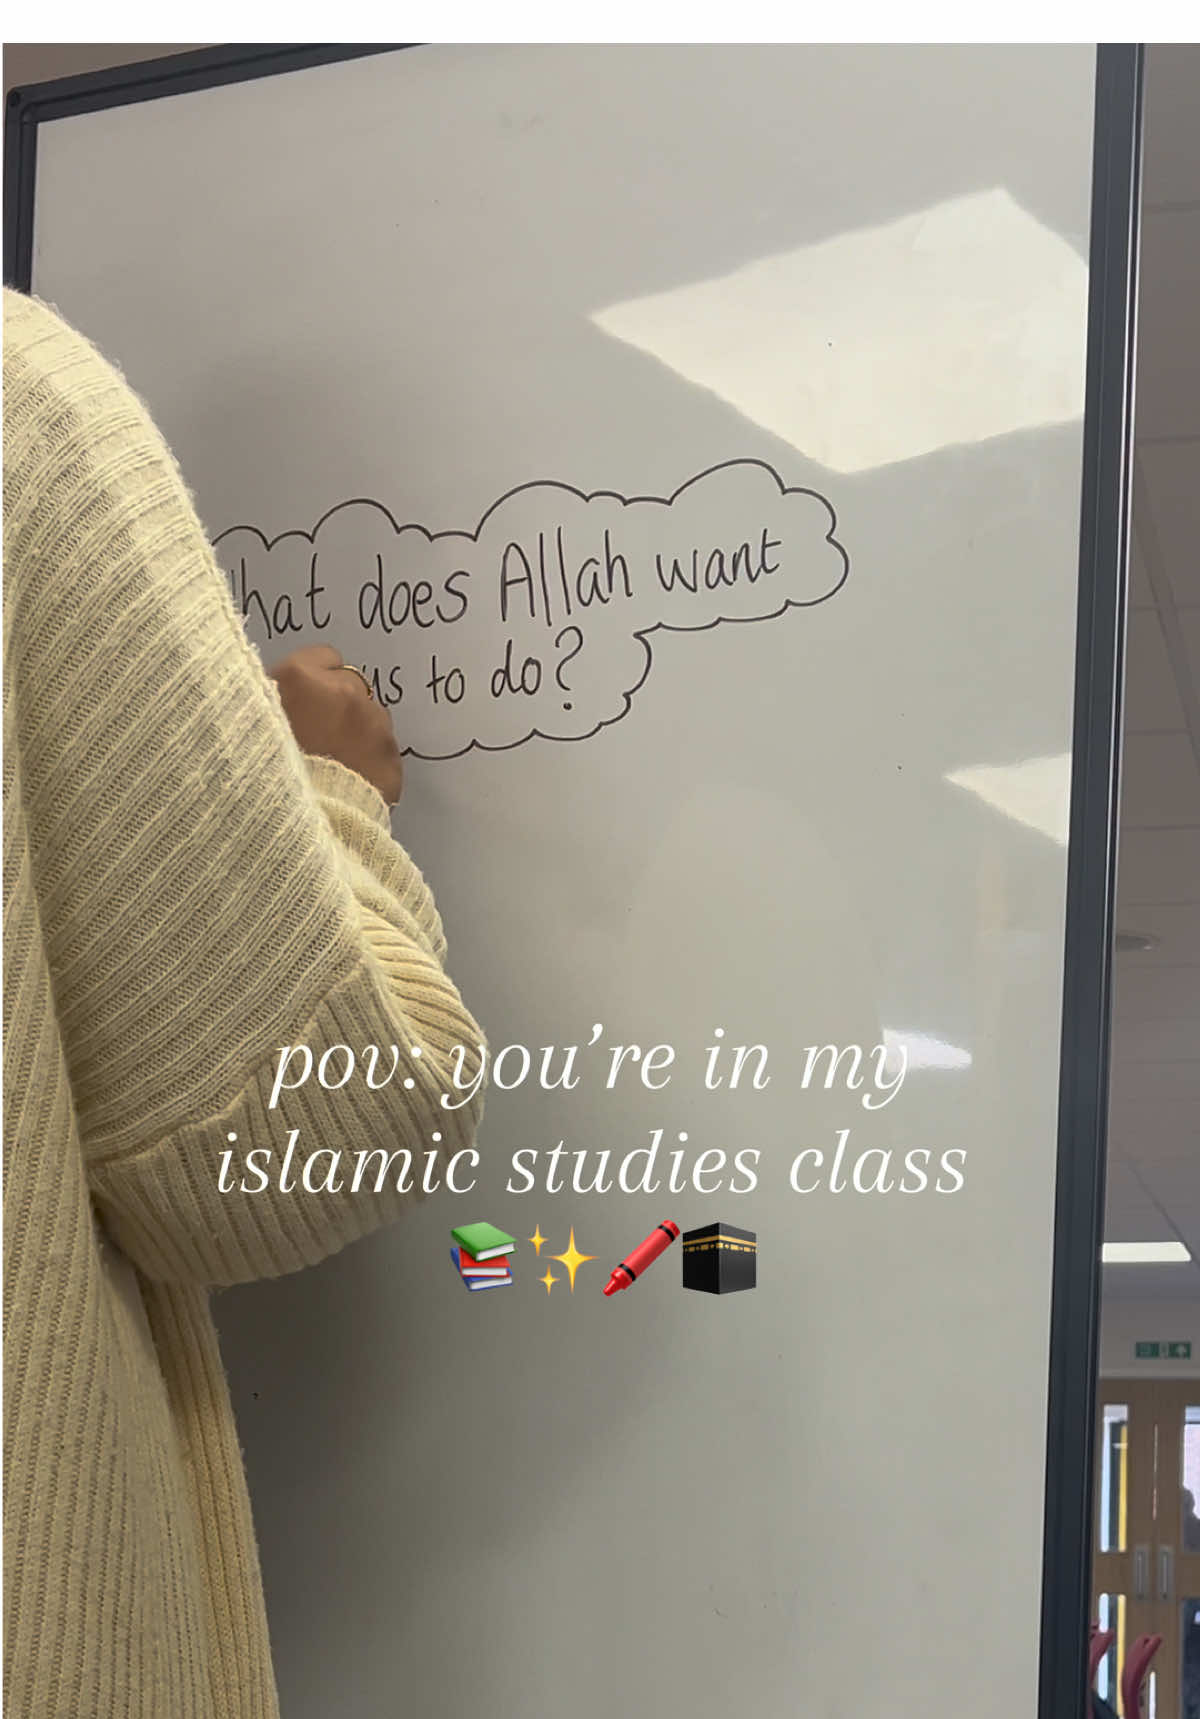 hat does Allah want
us to do?
pov: you're in my
islamic studies class
📚✨🖍️🕋